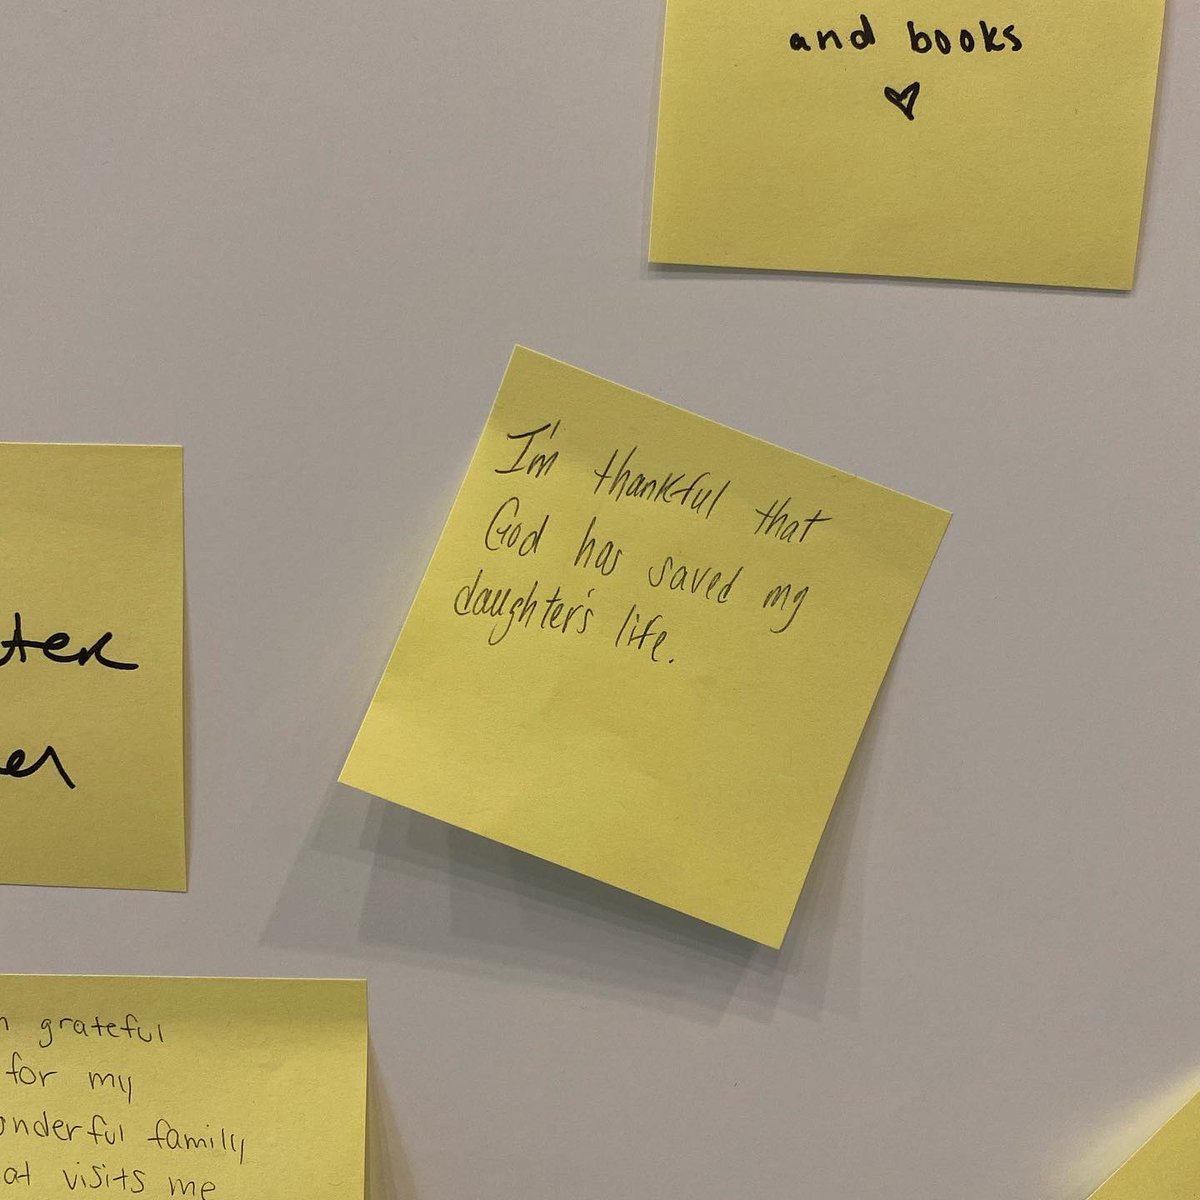 and books
I'm thankful that
God has saved my
daughter's life.
grateful
for my
family
visits me